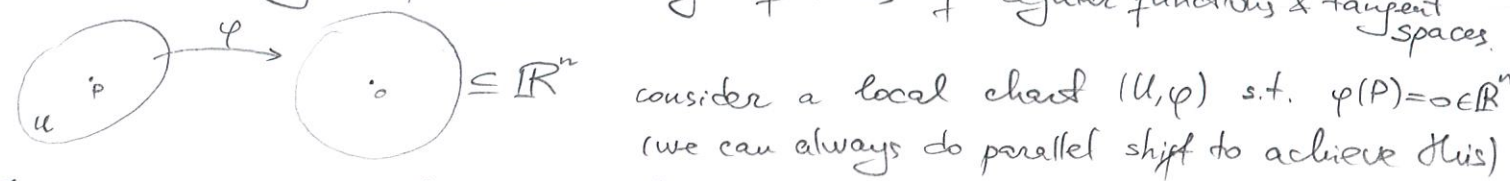 functions & tangent
spaces.
φ
p
u
o
⊆ ℝⁿ
consider a local chart (U,φ) s.t. φ(P)=o∈ℝⁿ
(we can always do parallel shift to achieve this)